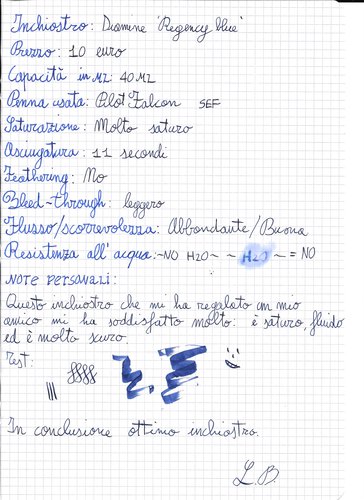 Inchiostro: Diamine "Regency blue"
Prezzo: 10 euro
Capacità in ML: 40 ML
Penna usata: Pilot Falcon SEF
Saturazione: Molto saturo
Asciugatura: 11 secondi
Feathering: No
Bleed-through: leggero
Flusso/scorrevolezza: Abbondante/Buona
Resistenza all'acqua: ~NO H2O~ ~ H2O ~ = NO
NOTE PERSONALI:
Questo inchiostro che mi ha regalato un mio
amico mi ha soddisfatto molto: è saturo, fluido
ed è molto scuro.
Test:
In conclusione ottimo inchiostro.
L.B.